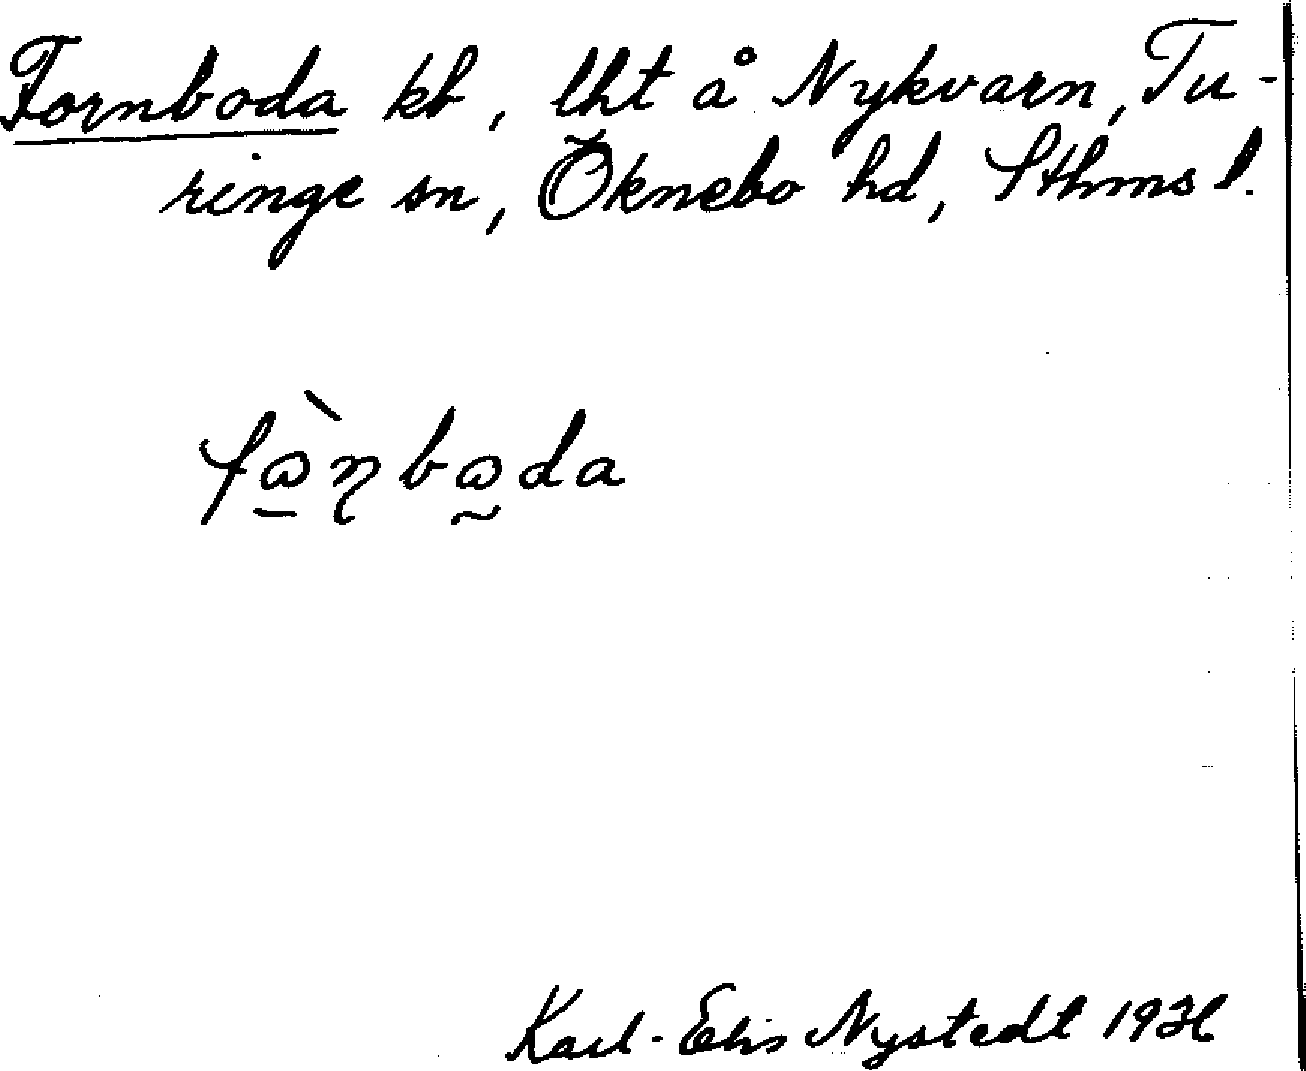 Fornboda kt, lht å Nykvarn, Tu-
ringe sn, Öknebo hd, Sthms l.
fɷ̠̀ɳbɷ̰da
Karl-Elis Nystedt 1936